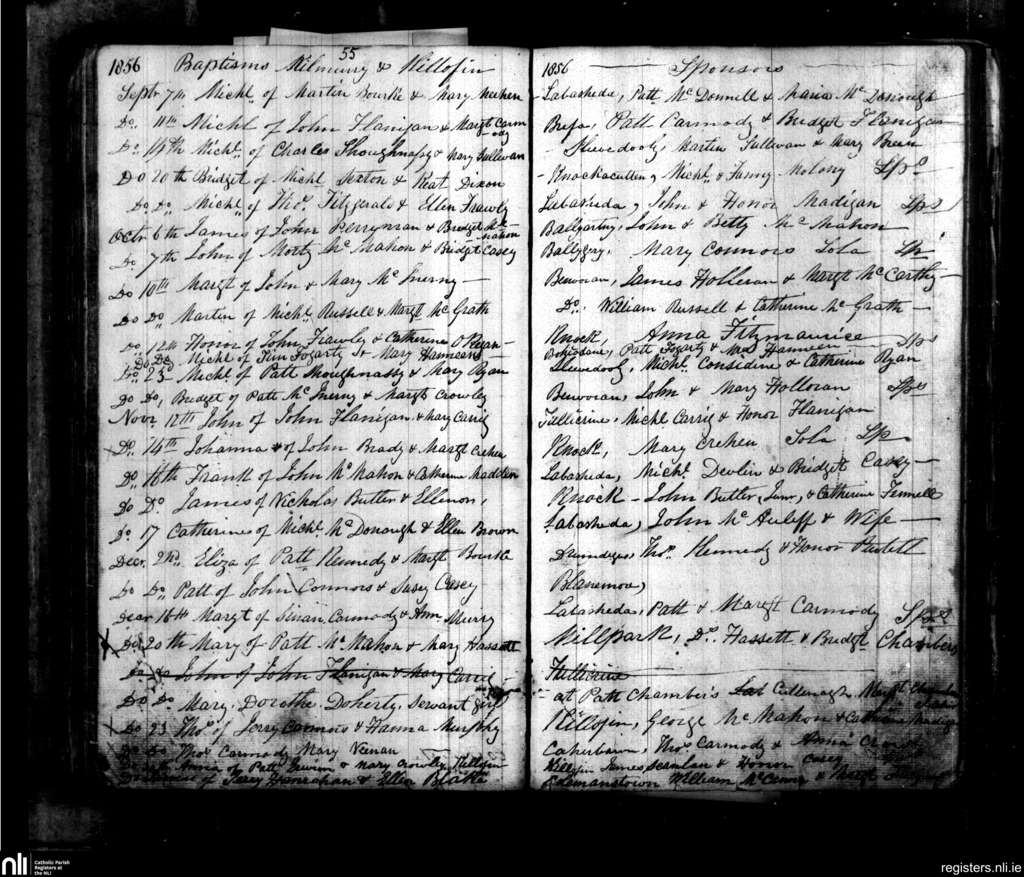 55
1856 Baptisms Kilmurry & Killofin
Septr 7th Michl of Martin Bourke & Mary Meehen
Do 11th Michl of John Flanigan & Margt Carmody
Do 14th Michl of Charles Shoughnassy & Mary Sullivan
Do 20th Bridget of Michl Sexton & Keat Dixon
Do Do Michl of Thos Fitzgerald & Ellen Frawly
Octr 6th James of John Perryman & Bridget McMahon
Do 7th John of Morty McMahon & Bridget Casey
Do 10th Margt of John & Mary McInerny
Do Do Martin of Michl Russell & Margt McGrath
Do 12th Honor of John Frawly & Catherine O Regan
Do Do Michl of Tim Fogarty & Mary Hanneen
Do 23d Michl of Patt Shoughnassy & Mary Ryan
Do Do, Bridget of Patt McInerny & Margt Crowley
Novr 12th John of John Flanigan & Mary Carrig
Do 14th Johanna of John Brady & Margt Crehen
Do 16th Frank of John McMahon & Catherine Madden
Do Do James of Nicholas Butler & Ellenor,
Do 17 Catherine of Michl McDonough & Ellen Brown
Decr 2nd, Eliza of Patt Kennedy & Margt Bourke
Do Do Patt of John Connors & Susey Casey
Decr 18th Margt of Sinan Carmody & Ann Murry
Do 20th Mary of Patt McMahon & Mary Hassett
Do Do John of John Flanigan & Mary Carrig
Do Do Mary Dorothe Doherty, Servant girl
Do 23 Thos of Jerry Connors & Hanna Murphy
Do Do Thos Carmody Mary Neenan
Annie of Patt & Mary Crowley Killofin
of Jerry Hanrahan & Ellen Blake
1856 Sponsors
Labasheda, Patt McDonnell & Maria McDonough
Patt Carmody & Bridget Flanigan
Slievedooly, Martin Sullivan & Mary Breen
Knockacullen, Michl & Fanny Molony Sps
Labasheda, John & Honor Madigan Sps
John & Betty McMahon
Mary Connors Sola Sp
Benvoran, James Holleran & Margt McCarthy
Do. William Russell & Catherine McGrath
Knock, Anna Fitzmaurice Sps
Patt Fogarty & Mrs Hanneen
Slievedooly, Michl Considine & Catherine Ryan
Benvoran, John & Mary Holloran Sps
Tullicrine, Michl Carrig & Honor Flanigan
Knock, Mary Crehen Sola Sp
Labasheda, Michl Devlin & Bridget Casey
Knock - John Butler, Junr, & Catherine Finnell
Labasheda, John McAuliff & Wife
Thos Kennedy & Honor
Blanemore,
Labasheda, Patt & Margt Carmody Sps
Millpark, Do Hassett & Bridgt Chambers
Tullicrine
at Patt Chambers Cullenagh Margt Chambers
Killofin, George McMahon & Catherine Madigan
Caherbawn, Thos Carmody & Anna
Killofin James Scanlan & Honor Casey
William & Margt
nli Catholic Parish
Registers at
the NLI
registers.nli.ie